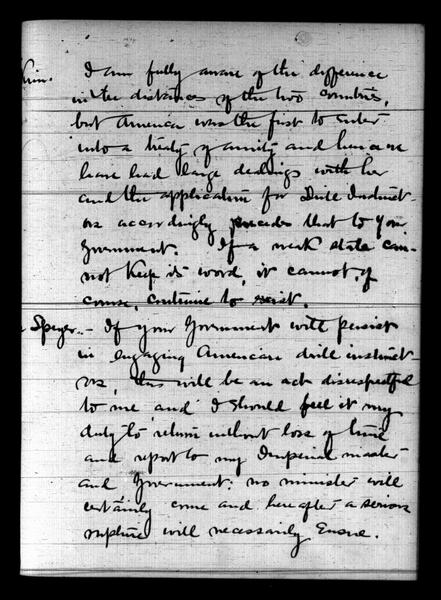 Kim. I am fully aware of the difference
in the distances of the two countries,
but America was the first to enter
into a treaty of amity and hence we
have had large dealings with her
and the application for Drill Instruct-
ors accordingly precedes that to your
Government. If a weak state can-
not keep its word, it cannot, of
course, continue to exist.
Speyer.- If your Government will persist
in engaging American drill instruct-
ors, this will be an act disrespectful
to me and I should feel it my
duty to return without loss of time
and report to my Imperial master
and Government: no minister will
certainly come and hereafter a serious
rupture will necessarily ensue.